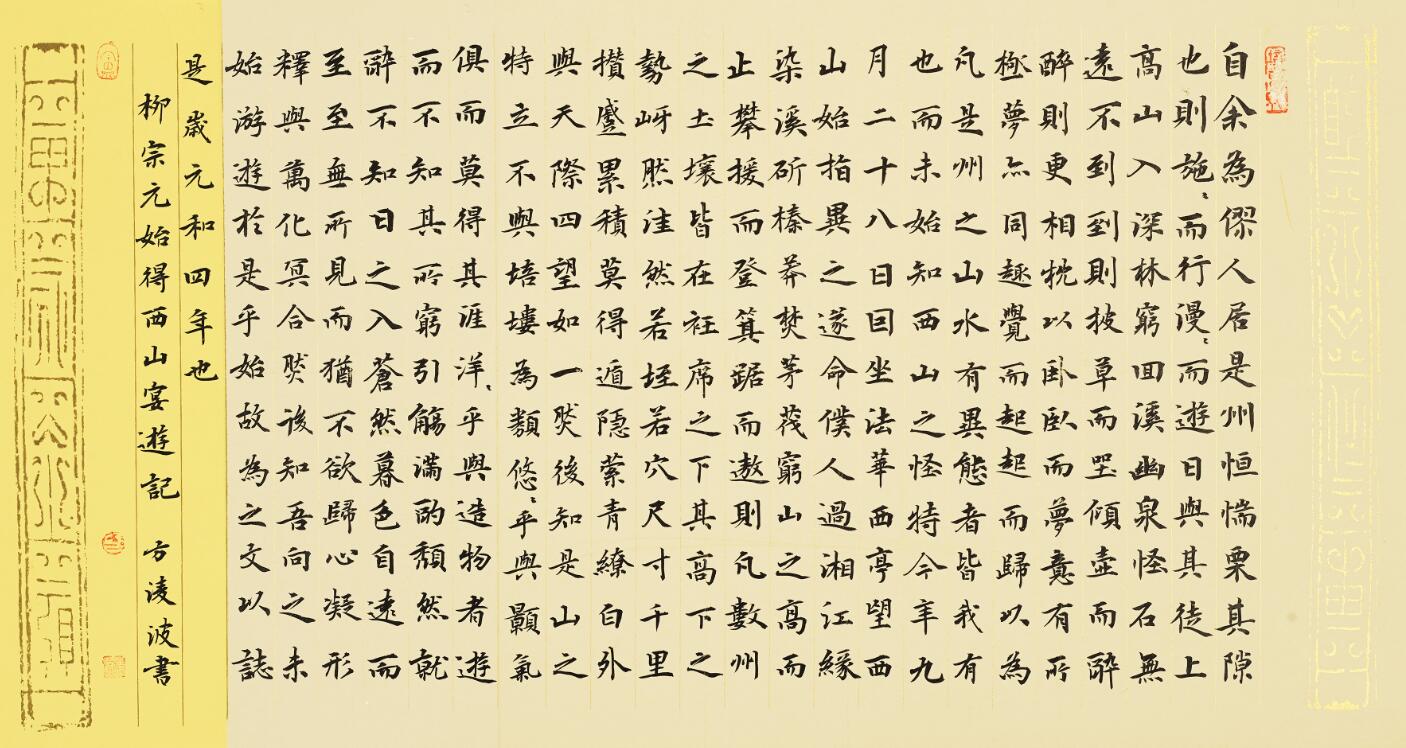 自余為僇人居是州恒惴栗其隙
也則施〻而行漫〻而遊日與其徒上
高山入深林窮回溪幽泉怪石無
遠不到到則披草而坐傾壺而醉
醉則更相枕以卧卧而夢意有所
極夢亦同趣覺而起起而歸以為
凡是州之山水有異態者皆我有
也而未始知西山之怪特今年九
月二十八日因坐法華西亭望西
山始指異之遂命僕人過湘江緣
染溪斫榛莽焚茅茷窮山之高而
止攀援而登箕踞而遨則凡數州
之土壤皆在衽席之下其高下之
勢岈然洼然若垤若穴尺寸千里
攢蹙累積莫得遁隱縈青繚白外
與天際四望如一然後知是山之
特立不與培塿為類悠〻乎與顥氣
俱而莫得其涯洋〻乎與造物者遊
而不知其所窮引觴滿酌頹然就
醉不知日之入蒼然暮色自遠而
至至無所見而猶不欲歸心凝形
釋與萬化冥合然後知吾向之未
始游遊於是乎始故為之文以誌
是歲元和四年也
柳宗元始得西山宴遊記 方淩波書